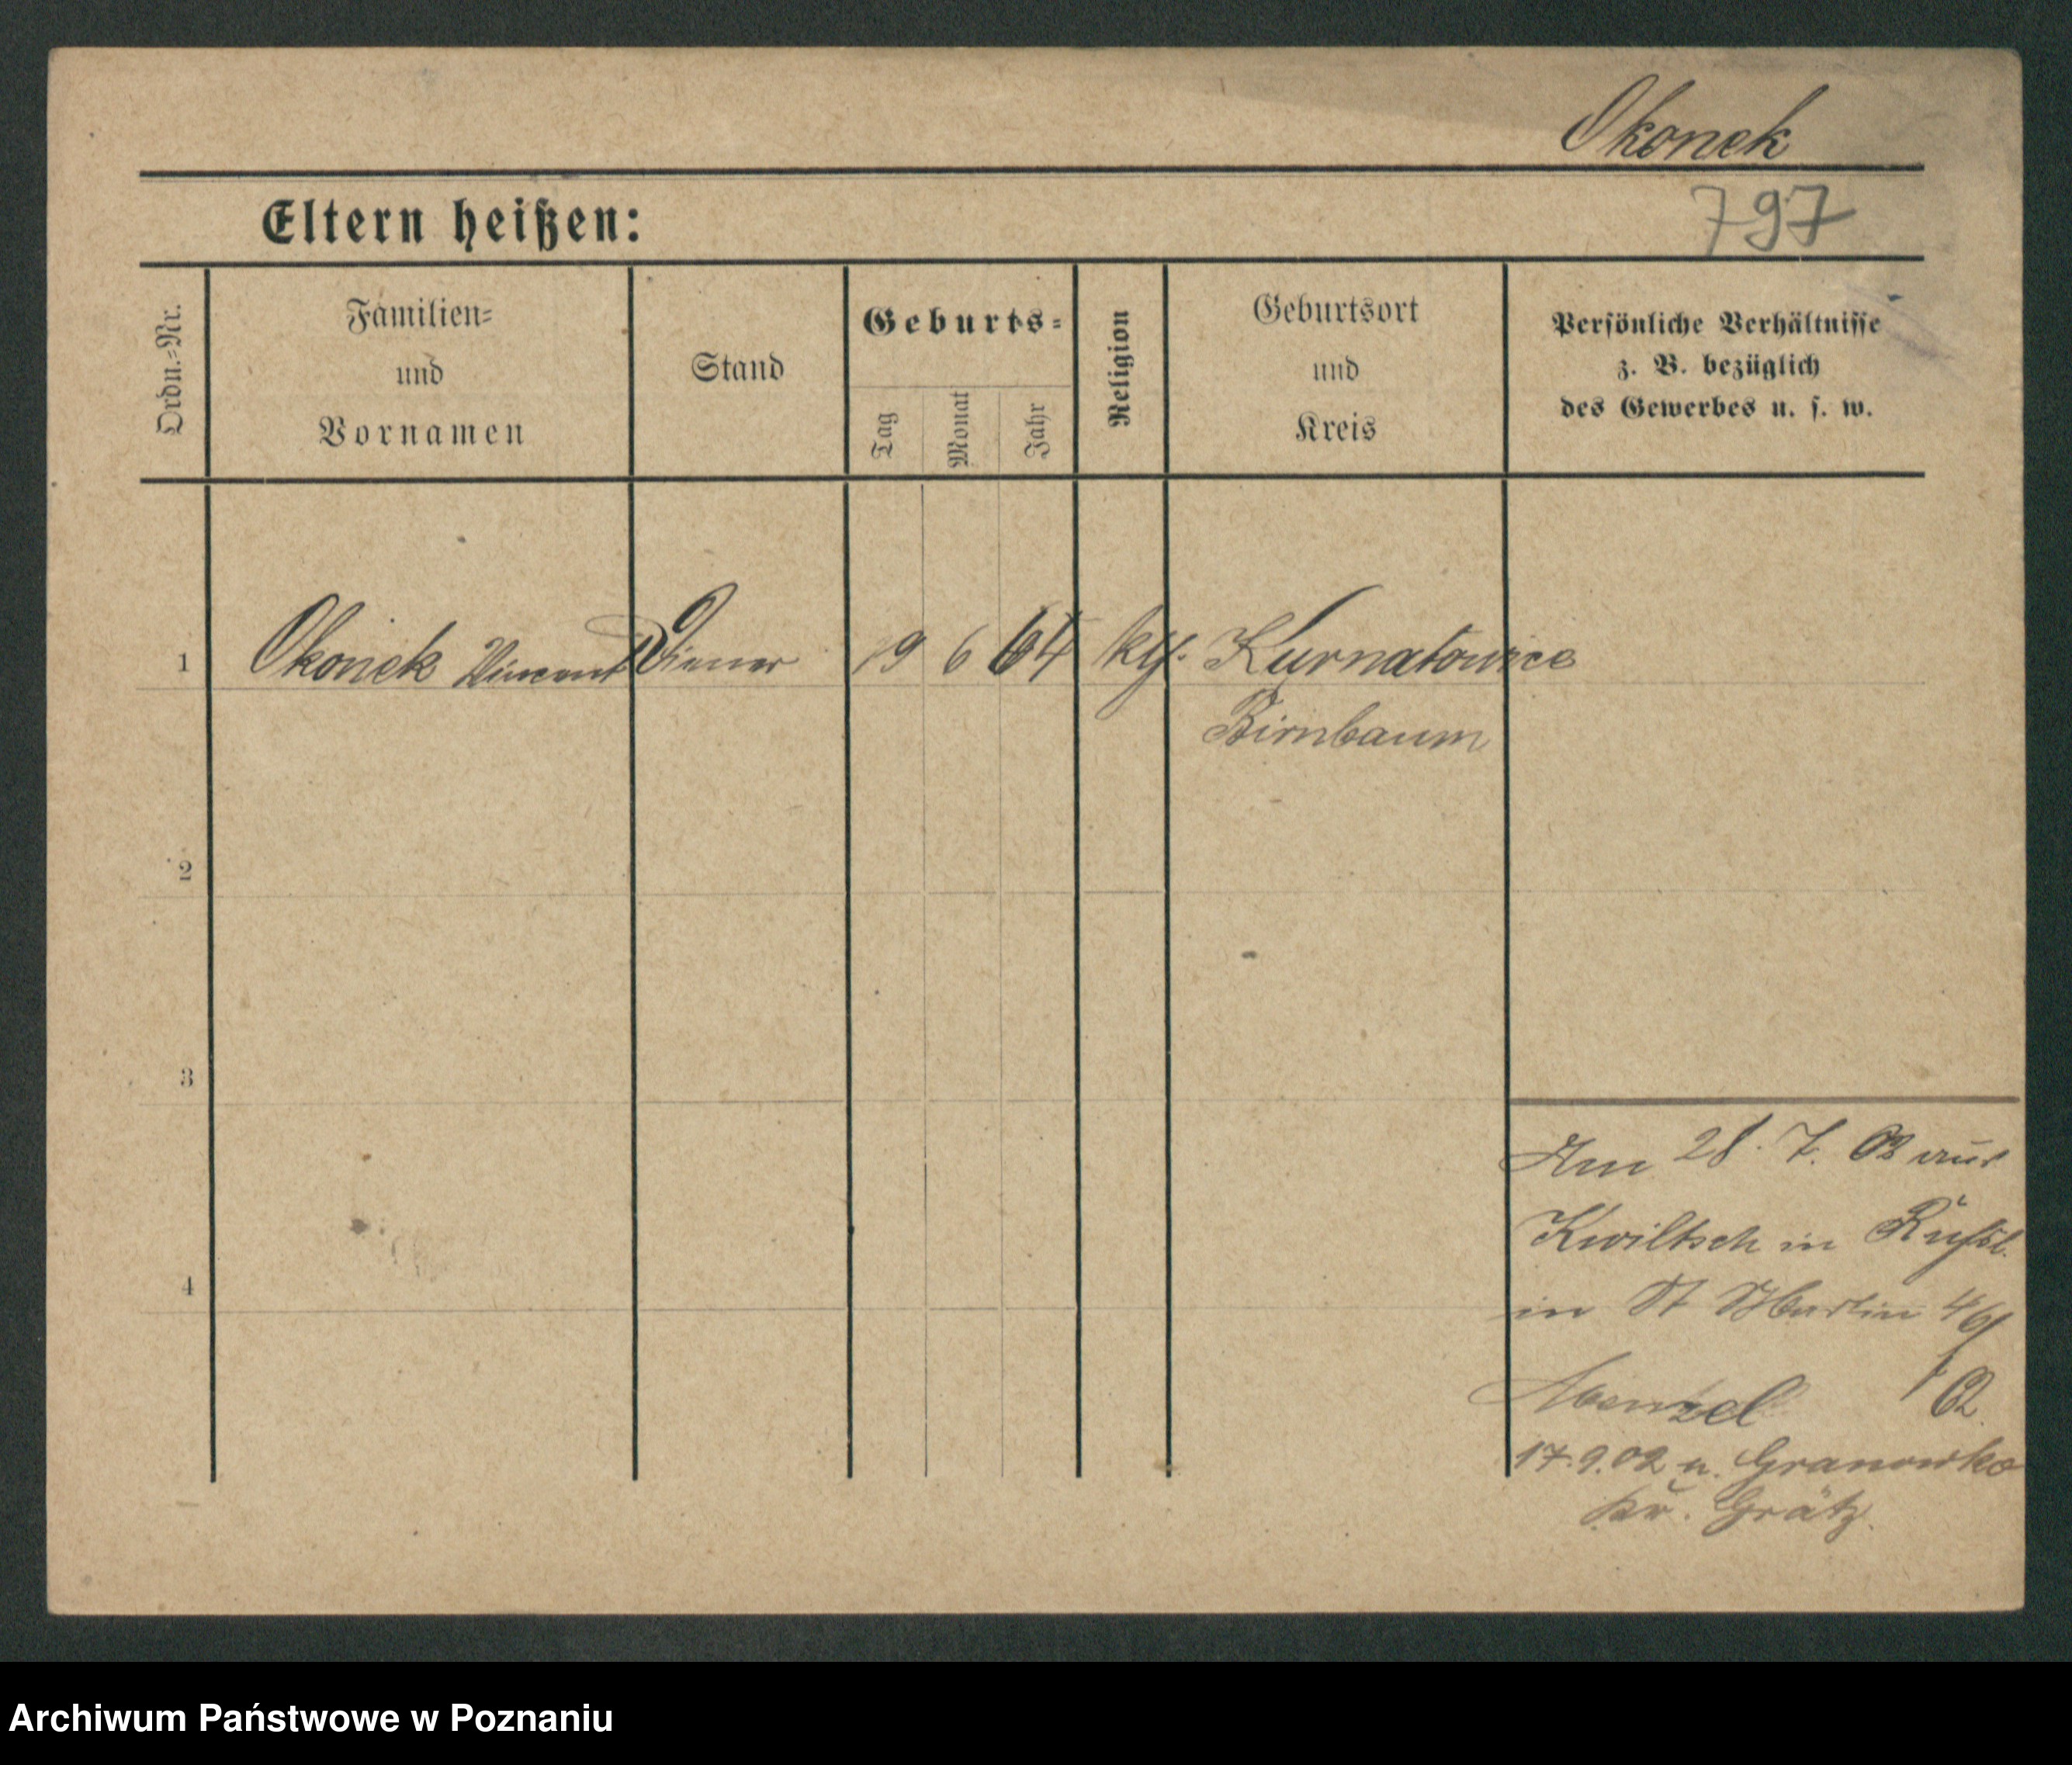 Okonek
797
Eltern heißen:
Ordn.-Nr.
Familien-
und
Vornamen
Stand
Geburts-
Tag
Monat
Jahr
Religion
Geburtsort
und
Kreis
Persönliche Verhältnisse
z. B. bezüglich
des Gewerbes u. s. w.
1 Okonek Vincent Diener 19 6 64 kth. Kurnatowice
Birnbaum
2
3
4
Am 28. 7. 02 aus
Kwiltsch in
in St Martin 4/6
Menzel 02.
17.9.02 n. Granowko
Kr. Grätz.
Archiwum Państwowe w Poznaniu